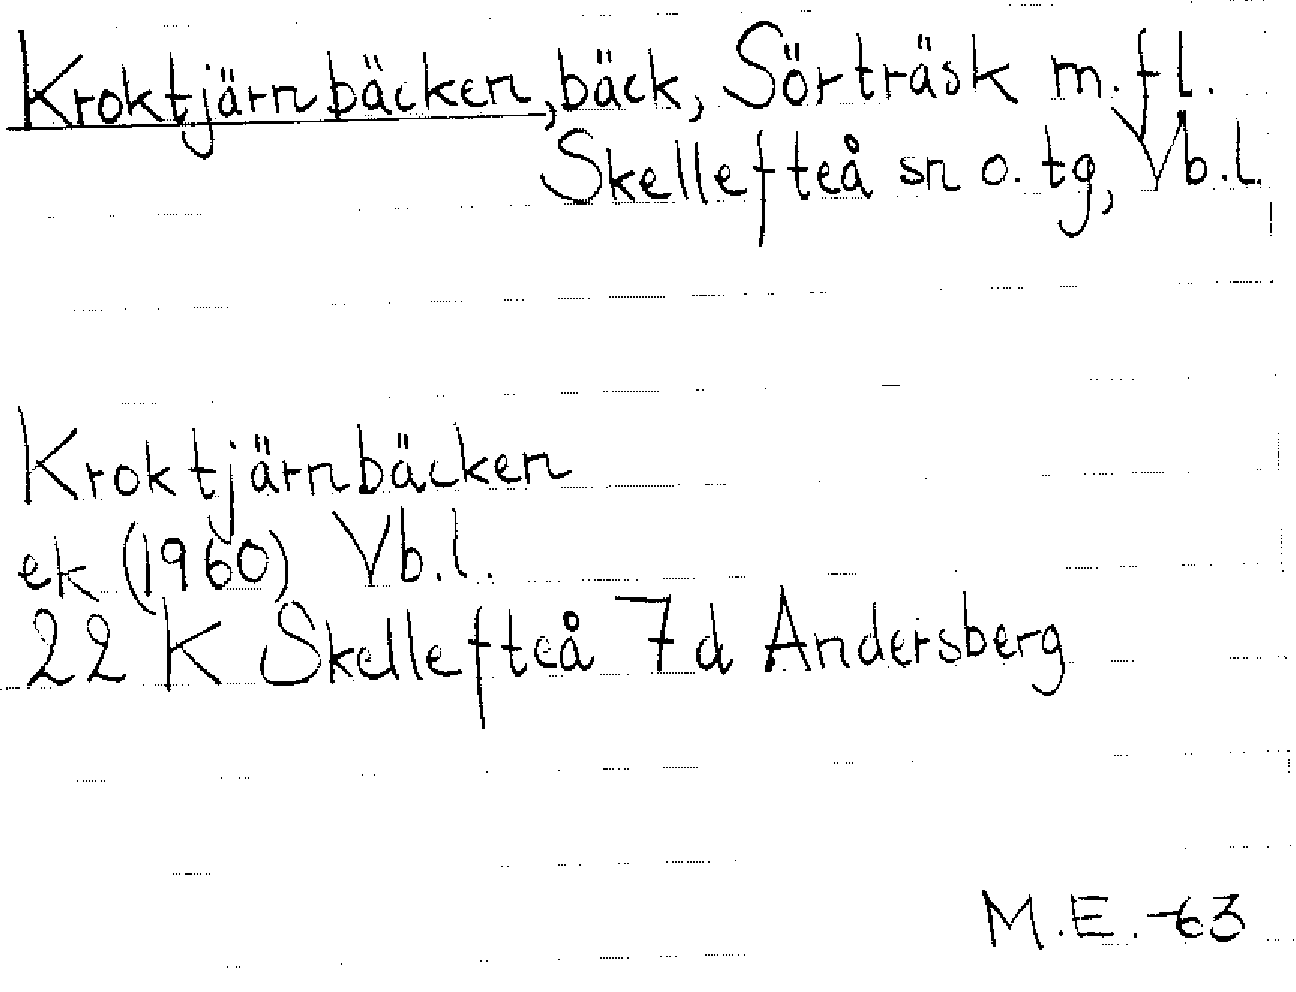 Kroktjärnbäcken, bäck, Sörträsk m.fl.
Skellefteå sn o. tg, Vb.l.
Kroktjärnbäcken
ek (1960) Vb.l.
22 K Skellefteå 7d Andersberg
M.E. -63